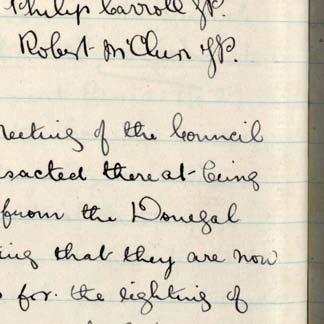 Philip Carroll JP.
Robert McClure JP.
meeting of the Council
sacted there at being
from the Donegal
ing that they are now
for the lighting of